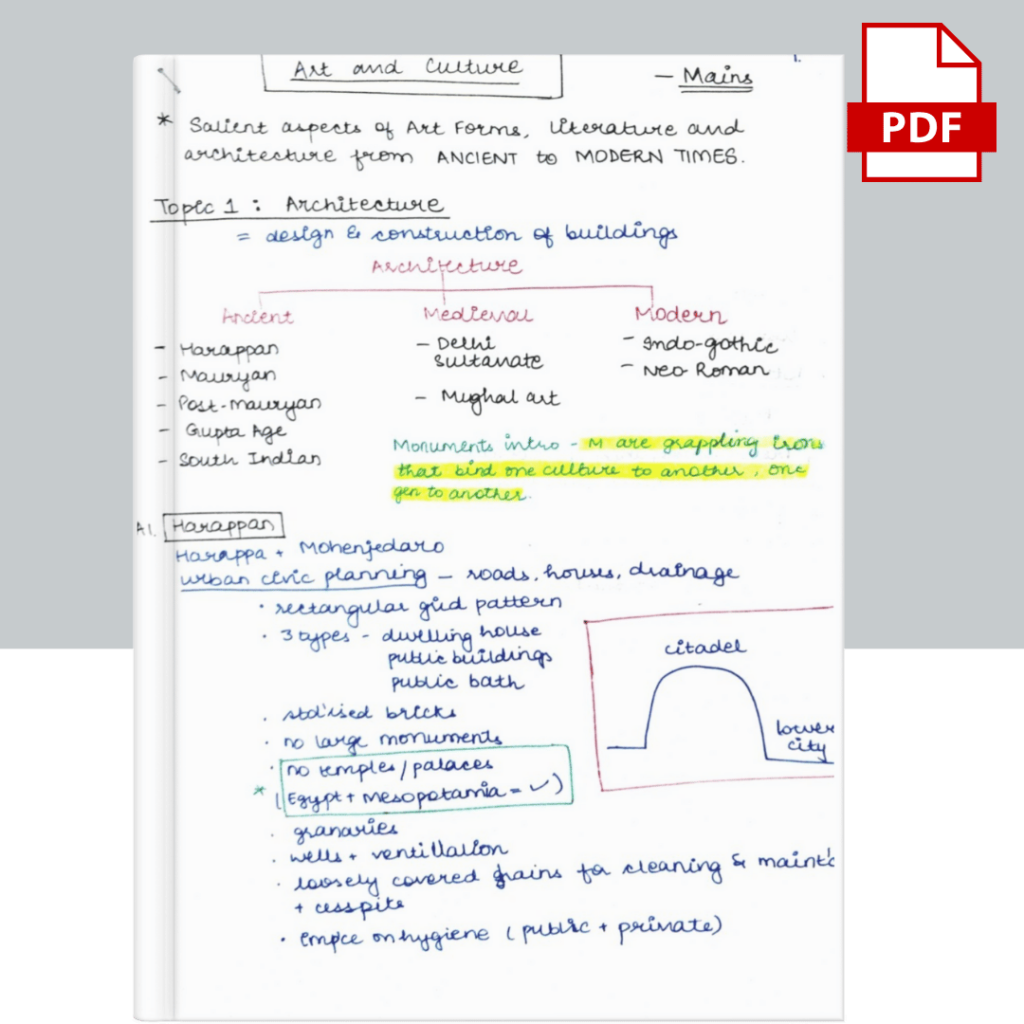 1.
Art and Culture
– Mains
PDF
* Salient aspects of Art Forms, Literature and
architecture from ANCIENT to MODERN TIMES.
Topic 1 : Architecture
= design & construction of buildings
Architecture
Ancient
- Harappan
- Mauryan
- Post-mauryan
- Gupta Age
- South Indian
Medieval
- Delhi
Sultanate
- Mughal art
Modern
- Indo-gothic
- Neo Roman
Monuments intro - M are grappling irons
that bind one culture to another, one
gen to another.
A1. Harappan
Harappa + Mohenjedaro
urban civic planning – roads, houses, drainage
· rectangular grid pattern
· 3 types - dwelling house
public buildings
public bath
· stdised bricks
· no large monuments
· no temples/palaces
* (Egypt + Mesopotamia = ✓)
· granaries
· wells + ventillation
· loosely covered drains for cleaning & maint'c
+ cesspits
· emp'ce on hygiene (public + private)
citadel
lower
city